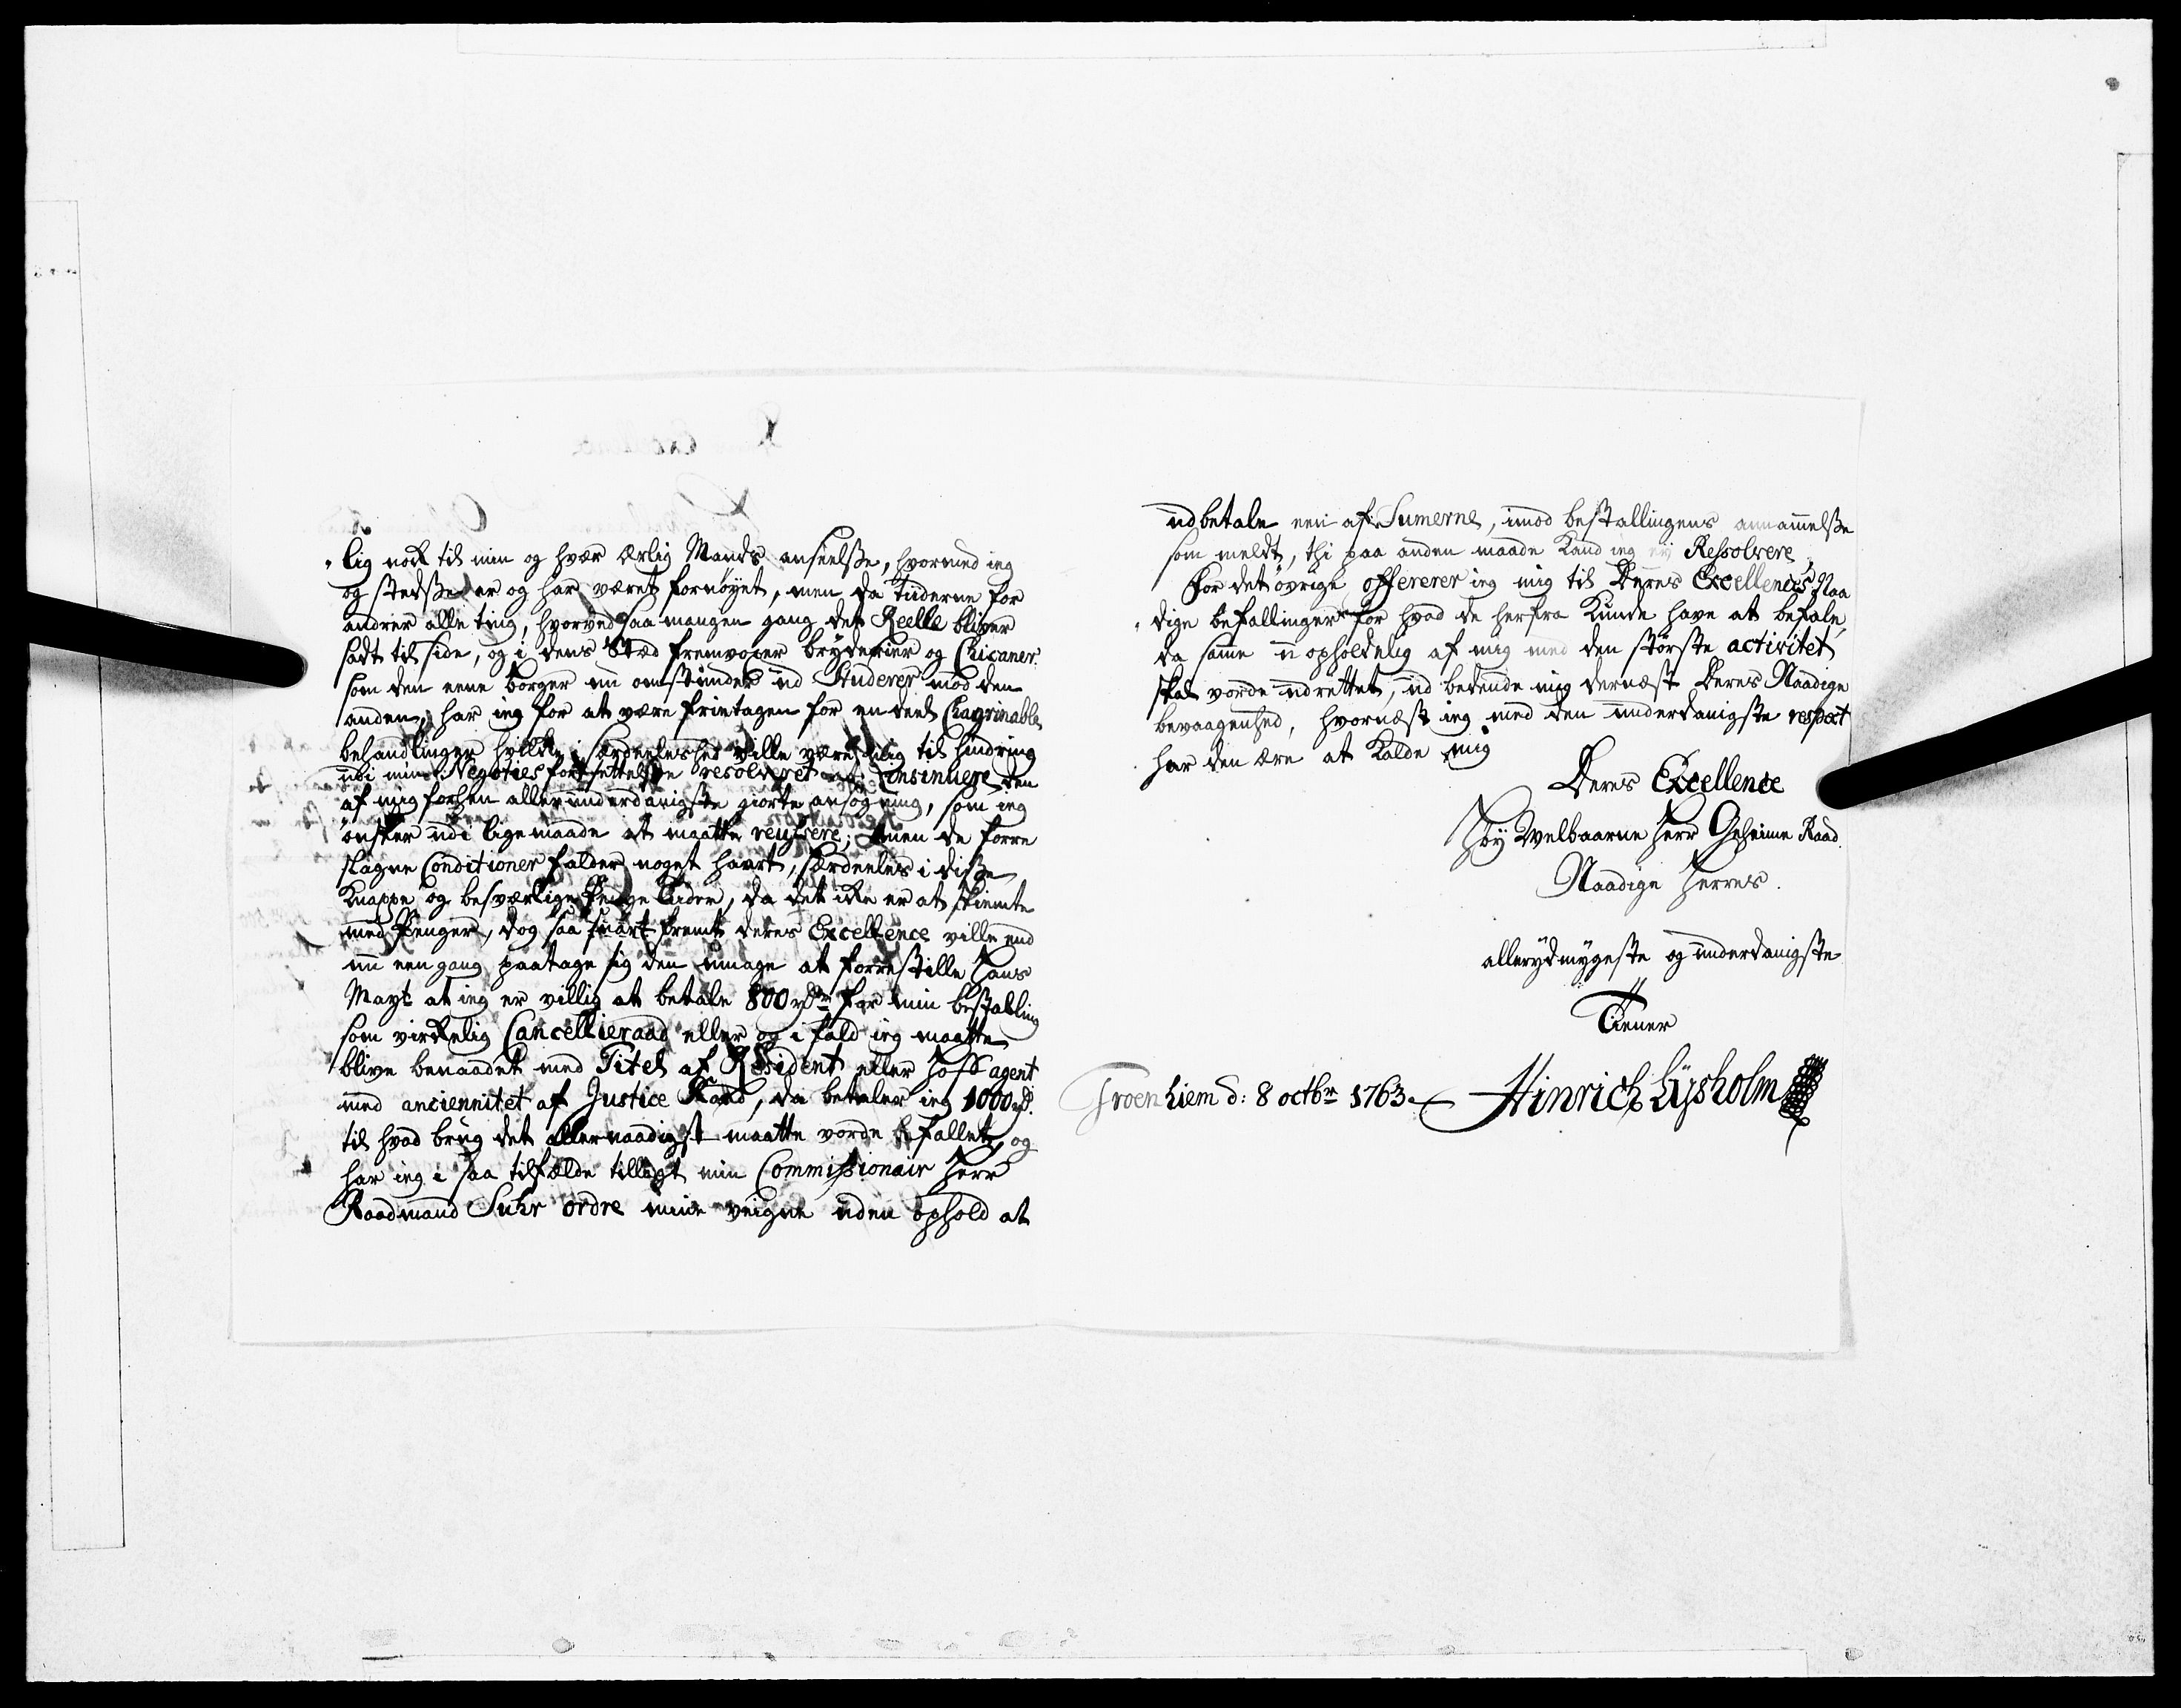 lig nock til min og hver ærlig Mands anseelse, hvormed ieg
og stedse er og har været fornøyet, men da tiiderne for
andrer alle ting, hvorved saa mangen gang det Reelle bliver
sadt til side, og i dens Sted fremvoxer bryderier og Chicaner
som den eene borger nu omstunder ud Studerer mod den
anden, har ieg for at være frietagen for en deel Chagrinable
behandlinger hvilke i særdeeleshed ville være til hindring
udi mine Negoties fortsettelse resolveret at Consinuere den
af mig forhen allerunderdanigste giorte ansøgning, som ieg
ønsker udi lige maade at maatte reussere; men de forre
slagne Conditioner falder noget haart, særdeeles i disse
knappe og besværlige Penge Tider, da det ikke er at skiemte
med Penger, dog saa snart fremt deres Excellence ville end
nu een gang paatage sig den umage at forrestille Hans
Mayt at ieg er villig at betale 800 rdr for min bestalling
som virkelig Cancellieraad eller og i fald ieg maatte
blive benaadet med Titel af Resident eller Hoff agent
med anciennitet af Justice Raad, da betaler ieg 1000 rd.
til hvad brug det allernaadigst maatte vorde befallet, og
har ieg i saa tilfælde tillagt min Commissionair Herr
Raadmand Suhr ordre mine veigne uden ophold at
udbetale een af Sumerne, imod bestallingens annammelse
som meldt, thi paa anden maade kand ieg ey Ressolvere
For det øvrige offererer ieg mig til Deres Excellences Naa
dige befallinger for hvad de herfra kunde have at befale,
da samme u opholdelig af mig med den største activitet
skal vorde udrettet, ud bedende mig dernæst Deres Naadige
bevaagenhed, hvornæst ieg med den underdanigste respect
har den ære at kalde mig
Deres Excellence
Høy Welbaarne Herr Geheime Raad
Naadige Herres.
allerydmygeste og underdanigste
Tiener
Troenhiem d: 8 octbr 1763. Hinrich Lysholm